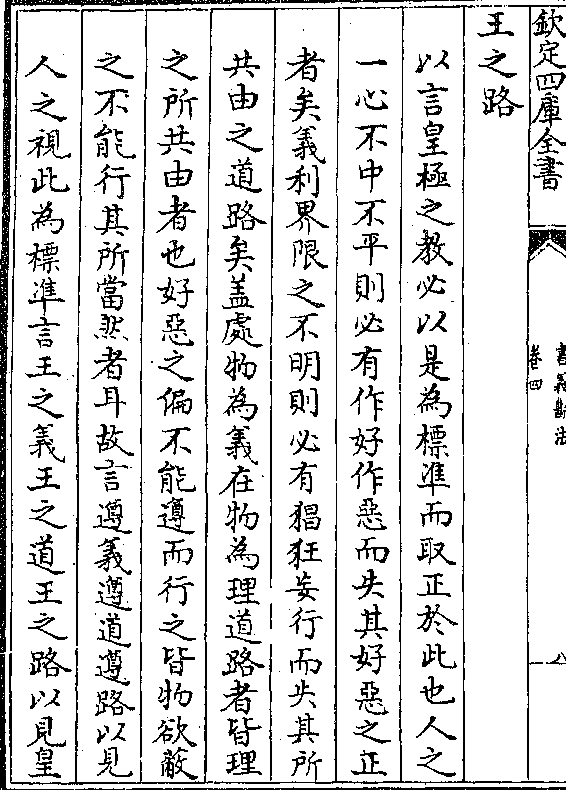 欽定四庫全書
書義斷法
卷四
八
王之路
以言皇極之教必以是為標準而取正於此也人之
一心不中不平則必有作好作惡而失其好惡之正
者矣義利界限之不明則必有猖狂妄行而失其所
共由之道路矣蓋處物為義在物為理道路者皆理
之所共由者也好惡之偏不能遵而行之皆物欲蔽
之不能行其所當然者耳故言遵義遵道遵路以見
人之視此為標準言王之義王之道王之路以見皇